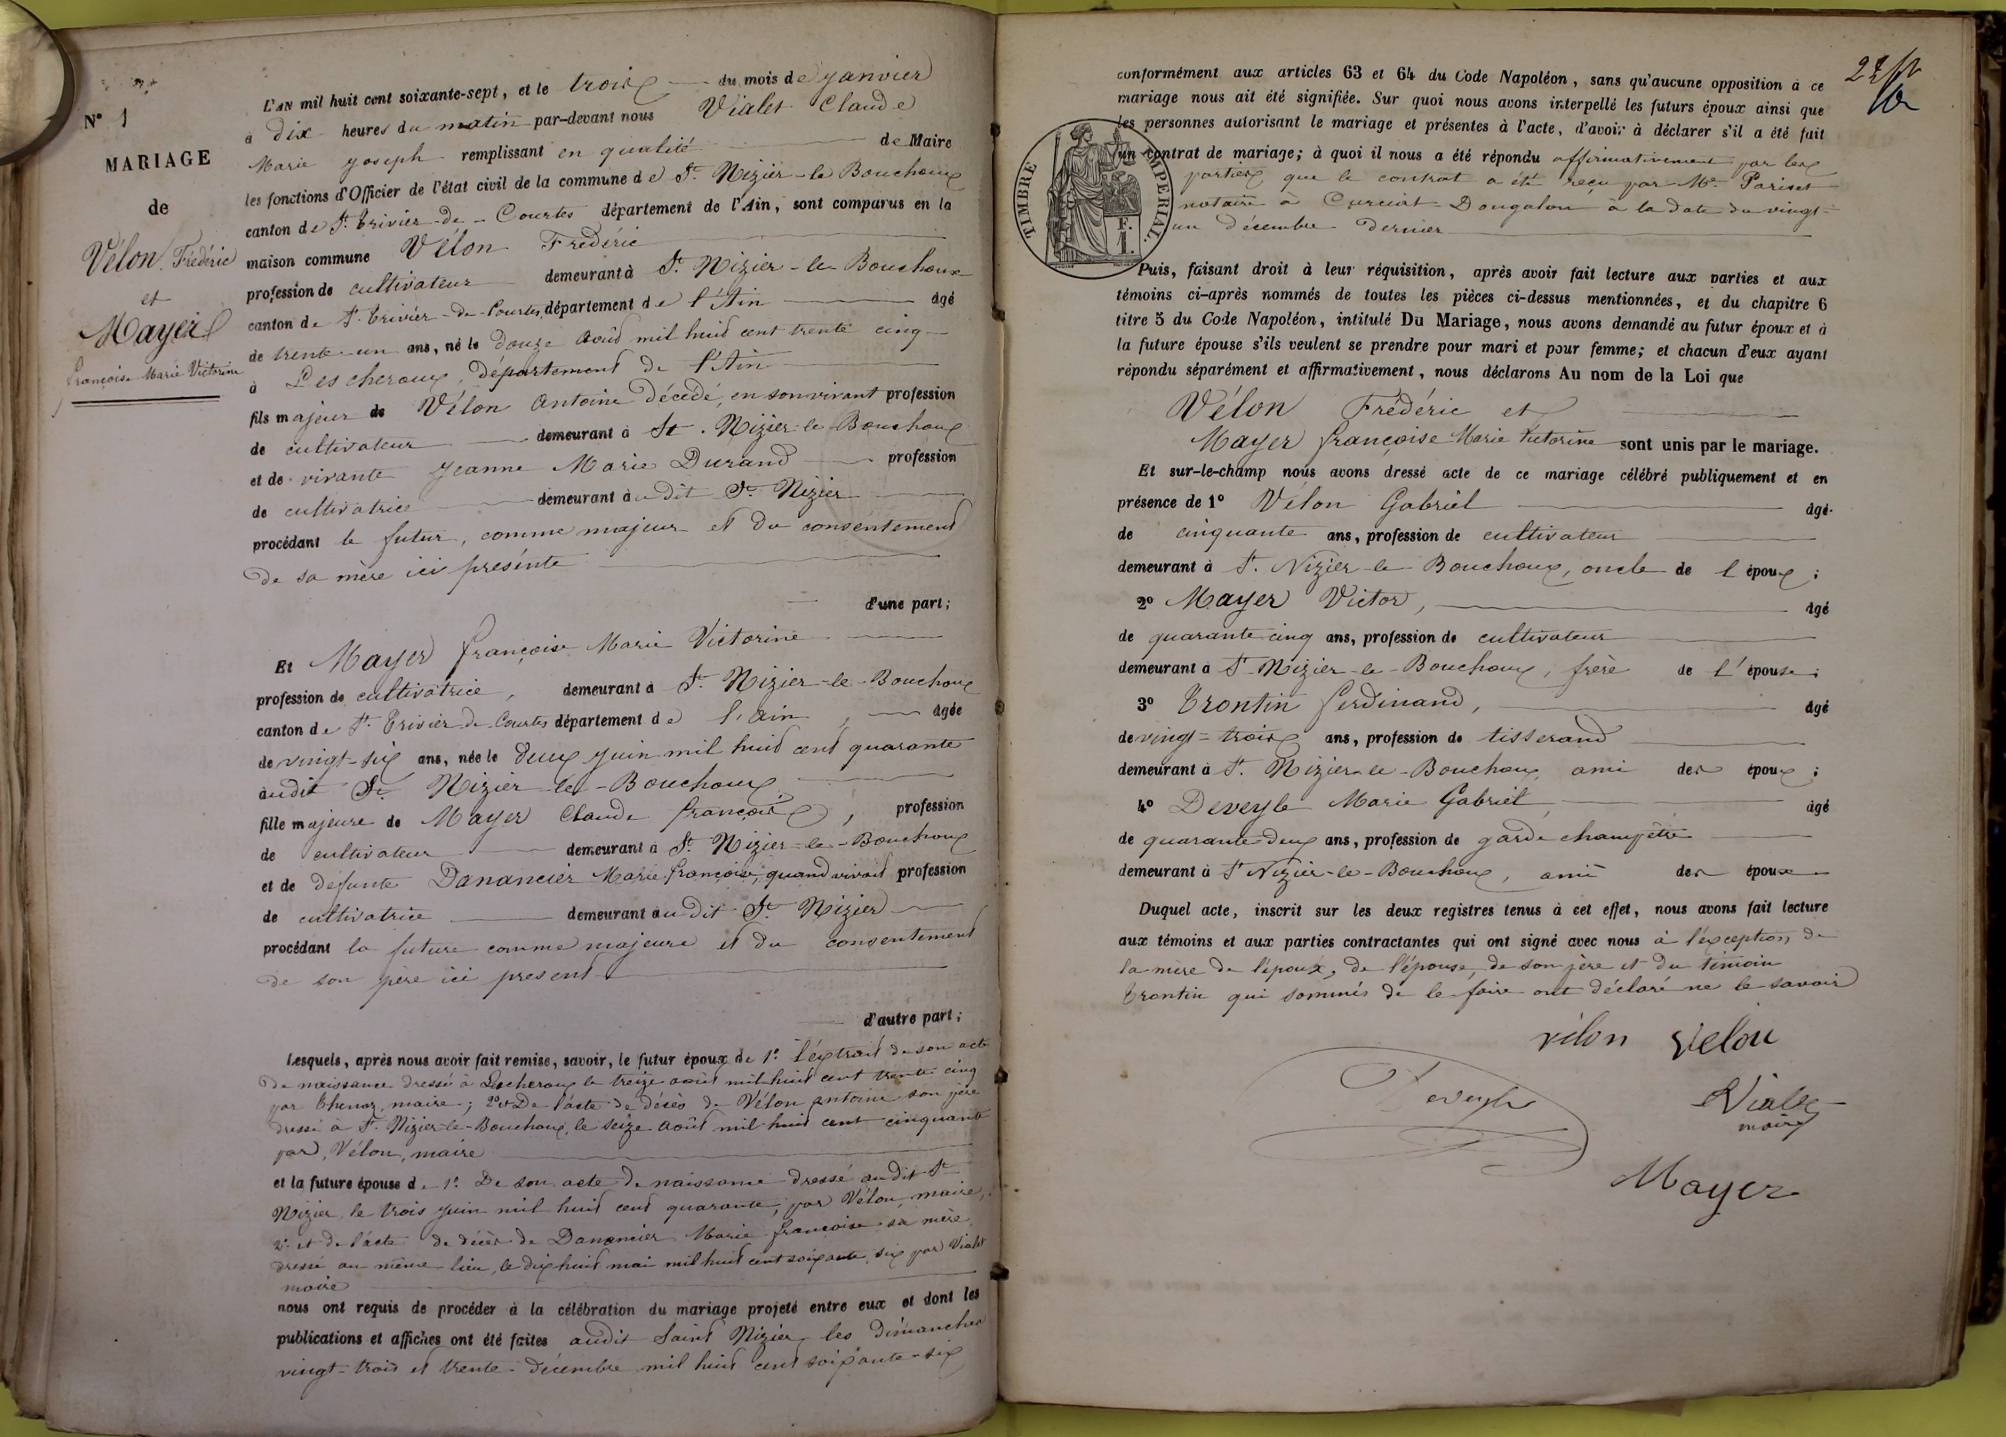 N° 1
MARIAGE
de
Vélon Frédéric
et
Mayer
françoise Marie Victorine
L'AN mil huit cent soixante-sept, et le trois du mois de janvier
à dix heures du matin par-devant nous Vialet Claude
Marie Joseph remplissant en qualité de Maire
les fonctions d'Officier de l'état civil de la commune de St. Nizier-le-Bouchoux
canton de St. Trivier-de-Courtes département de l'Ain, sont comparus en la
maison commune Vélon Frédéric
profession de cultivateur demeurant à St. Nizier-le-Bouchoux
canton de St. Trivier-de-Courtes, département de l'Ain âgé
de trente-un ans, né le douze août mil huit cent trente cinq
à Lescheroux, département de l'Ain
fils majeur de Vélon Antoine décédé, en son vivant profession
de cultivateur demeurant à St. Nizier-le-Bouchoux
et de vivante Jeanne Marie Durand profession
de cultivatrice demeurant audit St. Nizier
procédant le futur, comme majeur et du consentement
de sa mère ici présente
d'une part;
Et Mayer françoise Marie Victorine
profession de cultivatrice, demeurant à St. Nizier-le-Bouchoux
canton de St. Trivier-de-Courtes département de l'ain, âgée
de vingt-six ans, née le deux juin mil huit cent quarante
audit St. Nizier-le-Bouchoux
fille majeure de Mayer Claude françois, profession
de cultivateur demeurant à St. Nizier-le-Bouchoux
et de défunte Danancier Marie françoise, quand vivait profession
de cultivatrice demeurant audit St. Nizier
procédant la future comme majeure et du consentement
de son père ici présent
d'autre part;
Lesquels, après nous avoir fait remise, savoir, le futur époux de 1°. l'extrait de son acte
de naissance dressé à Lescheroux le treize août mil huit cent trente cinq
par Thenoz, maire; 2° et De l'acte de décès de Vélon Antoine son père
dressé à St. Nizier-le-Bouchoux, le seize août mil huit cent cinquante
par Vélon, maire
et la future épouse de 1°. De son acte de naissance dressé audit St.
Nizier, le trois juin mil huit cent quarante, par Vélon, maire,
2°. et de l'acte de décès de Danancier Marie françoise sa mère
dressé au même lieu, le dix huit mai mil huit cent soixante six par Vialet
maire
nous ont requis de procéder à la célébration du mariage projeté entre eux et dont les
publications et affiches ont été faites audit Saint Nizier les dimanches
vingt-trois et trente-décembre mil huit cent soixante-six
conformément aux articles 63 et 64 du Code Napoléon, sans qu'aucune opposition à ce
mariage nous ait été signifiée. Sur quoi nous avons interpellé les futurs époux ainsi que
les personnes autorisant le mariage et présentes à l'acte, d'avoir à déclarer s'il a été fait
un contrat de mariage; à quoi il nous a été répondu affirmativement par les
parties que le contrat a été reçu par Me. Pariset
notaire à Curciat-Dongalon à la date du vingt-
un décembre dernier
TIMBRE IMPERIAL.
F.
1.
Puis, faisant droit à leur réquisition, après avoir fait lecture aux parties et aux
témoins ci-après nommés de toutes les pièces ci-dessus mentionnées, et du chapitre 6
titre 5 du Code Napoléon, intitulé Du Mariage, nous avons demandé au futur époux et à
la future épouse s'ils veulent se prendre pour mari et pour femme; et chacun d'eux ayant
répondu séparément et affirmativement, nous déclarons Au nom de la Loi que
Vélon Frédéric et
Mayer françoise Marie Victorine sont unis par le mariage.
Et sur-le-champ nous avons dressé acte de ce mariage célébré publiquement et en
présence de 1° Vélon Gabriel âgé
de cinquante ans, profession de cultivateur
demeurant à St. Nizier-le-Bouchoux, oncle de l'époux;
2° Mayer Victor, âgé
de quarante cinq ans, profession de cultivateur
demeurant à St Nizier-le-Bouchoux, frère de l'épouse;
3° Trontin ferdinand, âgé
de vingt-trois ans, profession de tisserand
demeurant à St. Nizier-le-Bouchoux ami des époux;
4° Deveyle Marie Gabriel âgé
de quarante-deux ans, profession de garde champêtre
demeurant à St Nizier-le-Bouchoux, ami des époux
Duquel acte, inscrit sur les deux registres tenus à cet effet, nous avons fait lecture
aux témoins et aux parties contractantes qui ont signé avec nous à l'exception de
la mère de l'époux, de l'épouse, de son père et du témoin
Trontin qui sommés de le faire ont déclaré ne le savoir
vélon velon
Deveyle
Vialet
maire
Mayer